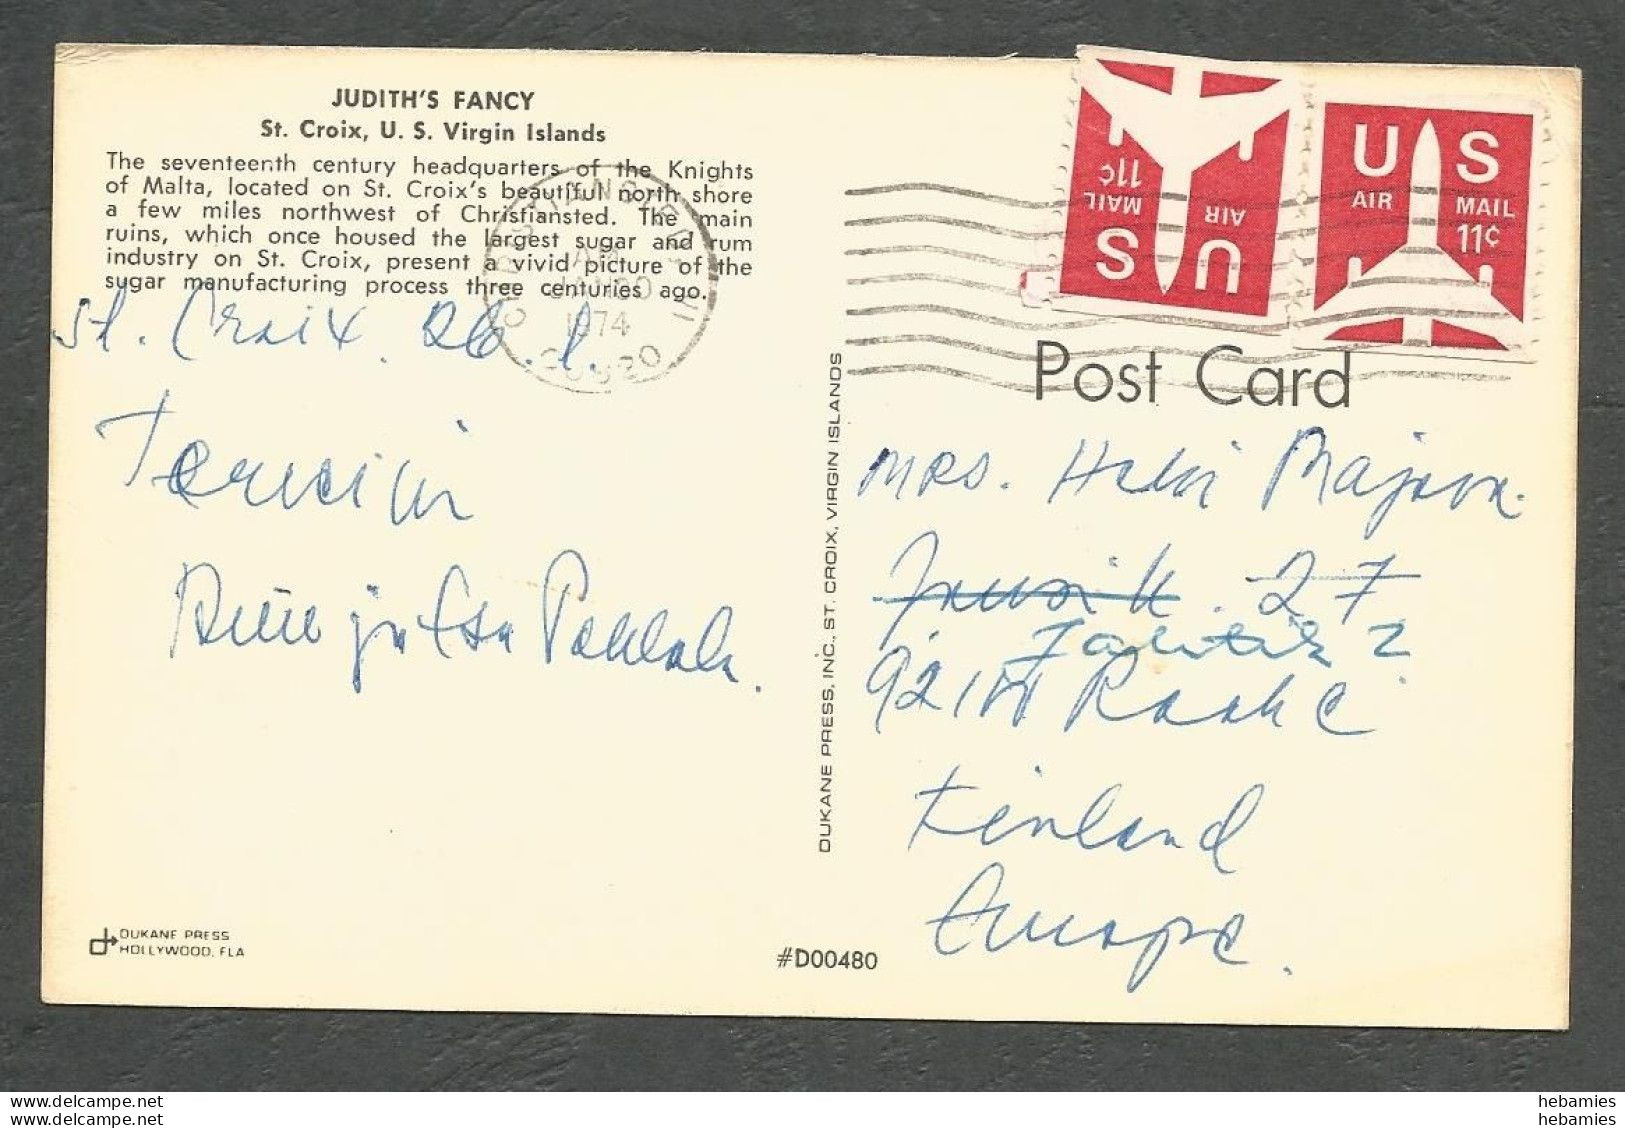 JUDITH'S FANCY
St. Croix, U. S. Virgin Islands
The seventeenth century headquarters of the Knights
of Malta, located on St. Croix's beautiful north shore
a few miles northwest of Christiansted. The main
ruins, which once housed the largest sugar and rum
industry on St. Croix, present a vivid picture of the
sugar manufacturing process three centuries ago.
St. Croix. 26.1.
CHRISTIANSTED VI
AM
JAN 30
1974
00820
US
AIR
MAIL
11¢
US
AIR
MAIL
11¢
Post Card
DUKANE PRESS, INC., ST. CROIX, VIRGIN ISLANDS
Mrs.
27
2
Raahe
Finland
Europe.
DUKANE PRESS
HOLLYWOOD, FLA
#D00480
www.delcampe.net
www.delcampe.net
hebamies
hebamies